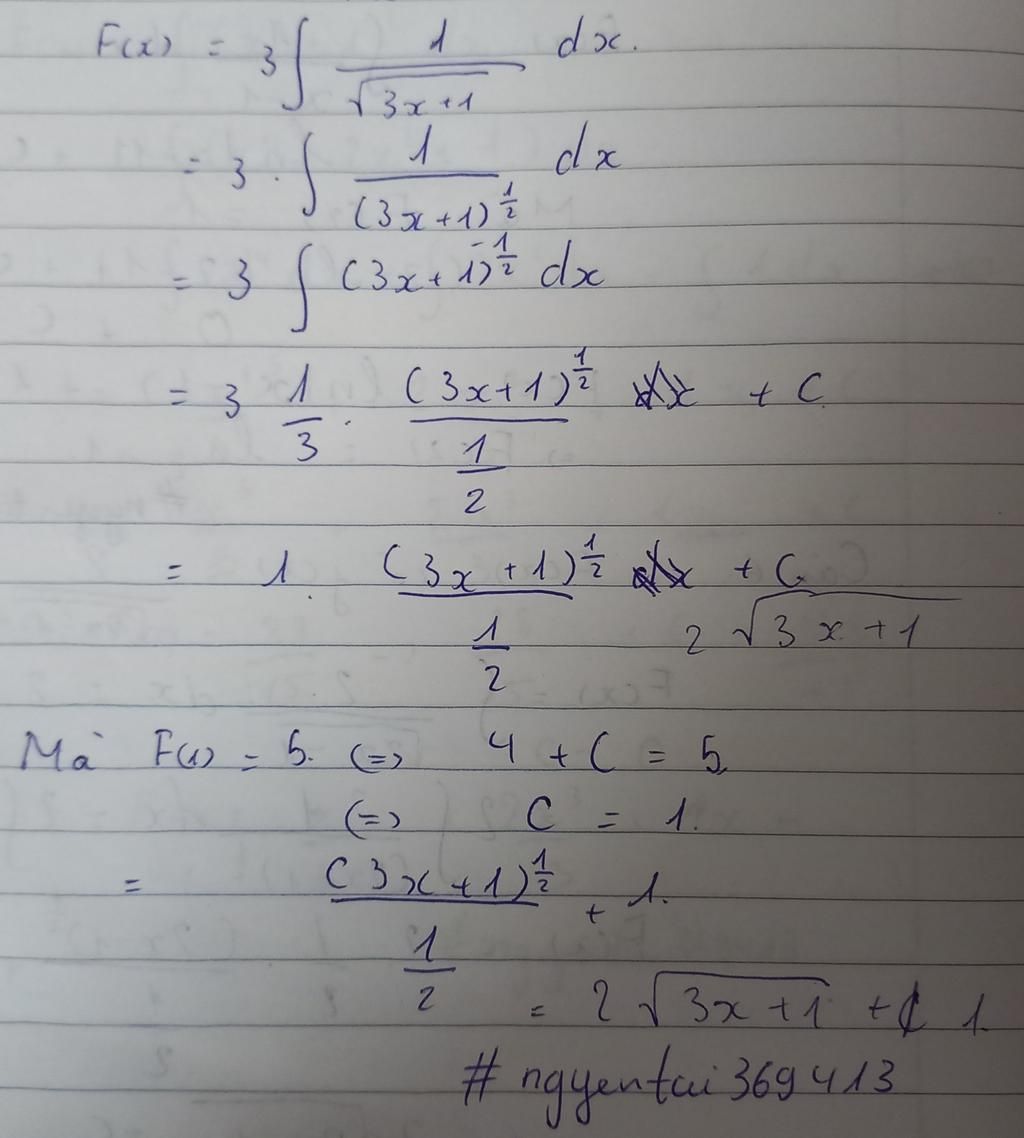 F(x) = 3∫ 1/√(3x+1) dx.
= 3 . ∫ 1/(3x+1)^(1/2) dx
= 3 ∫ (3x+1)^(-1/2) dx
= 3 1/3 . (3x+1)^(1/2)/(1/2) + C
= 1 . (3x+1)^(1/2)/(1/2) + C
2√(3x+1)
Mà F(1) = 5. (=> 4 + C = 5.
(=> C = 1.
= (3x+1)^(1/2)/(1/2) + 1.
= 2√(3x+1) + 1.
# ngyentai369413